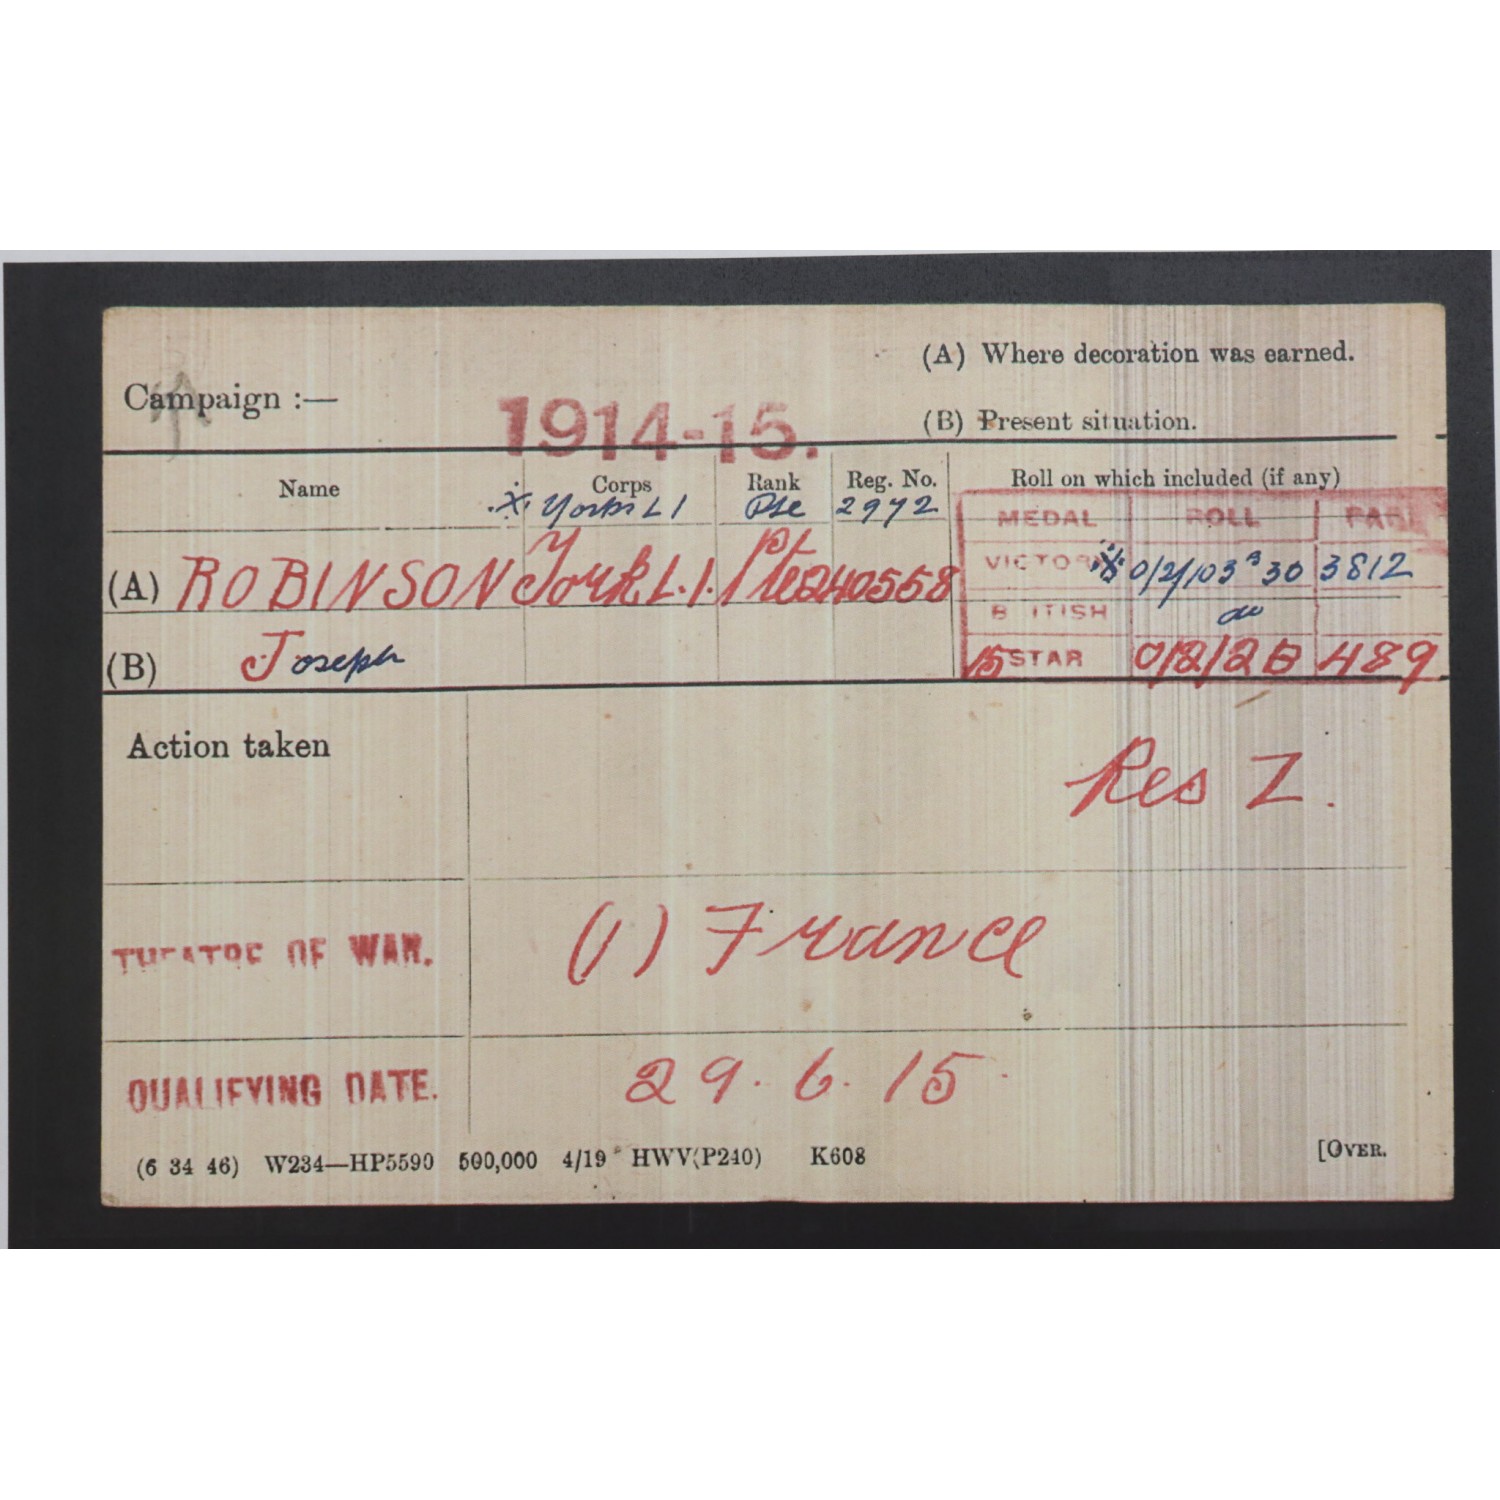 (A) Where decoration was earned.
Campaign :—
1914-15.
(B) Present situation.
Name Corps Rank Reg. No. Roll on which included (if any)
·X· Yorks L I Pte 2972
MEDAL ROLL PAGE
(A) ROBINSON York L.I. Pte 240558
VICTORY ※ 0/2/103 B 30 3812
B ITISH do
(B) Joseph
15 STAR 0/2/2B 489
Action taken
Res Z.
THEATRE OF WAR. (1) France
QUALIFYING DATE. 29.6.15.
(6 34 46) W234—HP5590 500,000 4/19 HWV(P240) K608 [OVER.